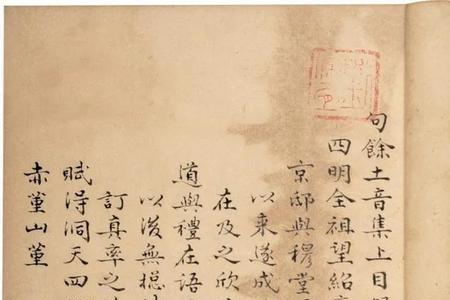 句餘土音集上目
四明全祖望紹
京邸與穆堂
以来遂成
在及之欣
道與禮在語
以後無
訂真率之
賦得洞天四
赤堇山堇